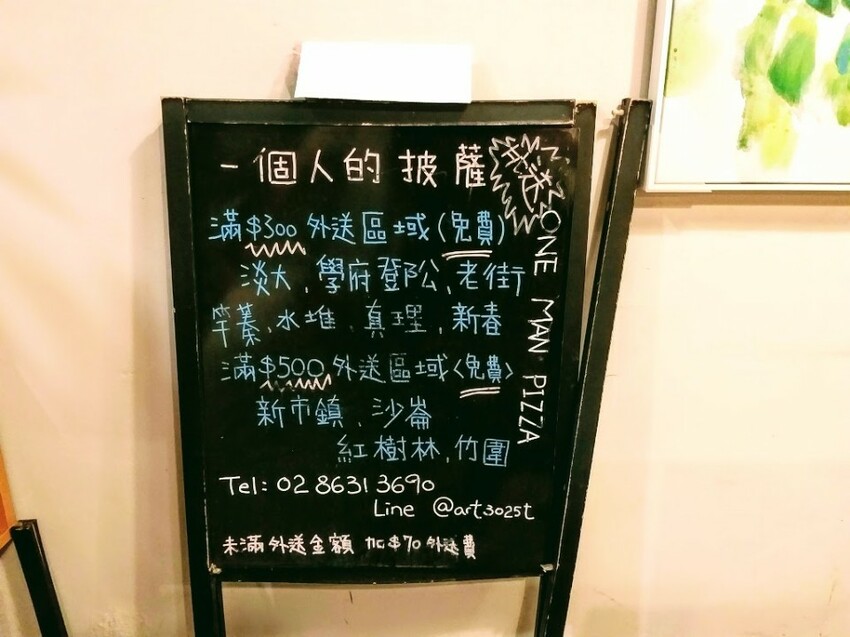 一個人的披薩
我送
ONE MAN PIZZA
滿$300外送區域(免費)
淡大、學府登公、老街
竿蓁、水堆、真理、新春
滿$500外送區域<免費>
新市鎮、沙崙
紅樹林、竹圍
Tel: 02 8631 3690
Line @art3025t
未滿外送金額 加$70外送費